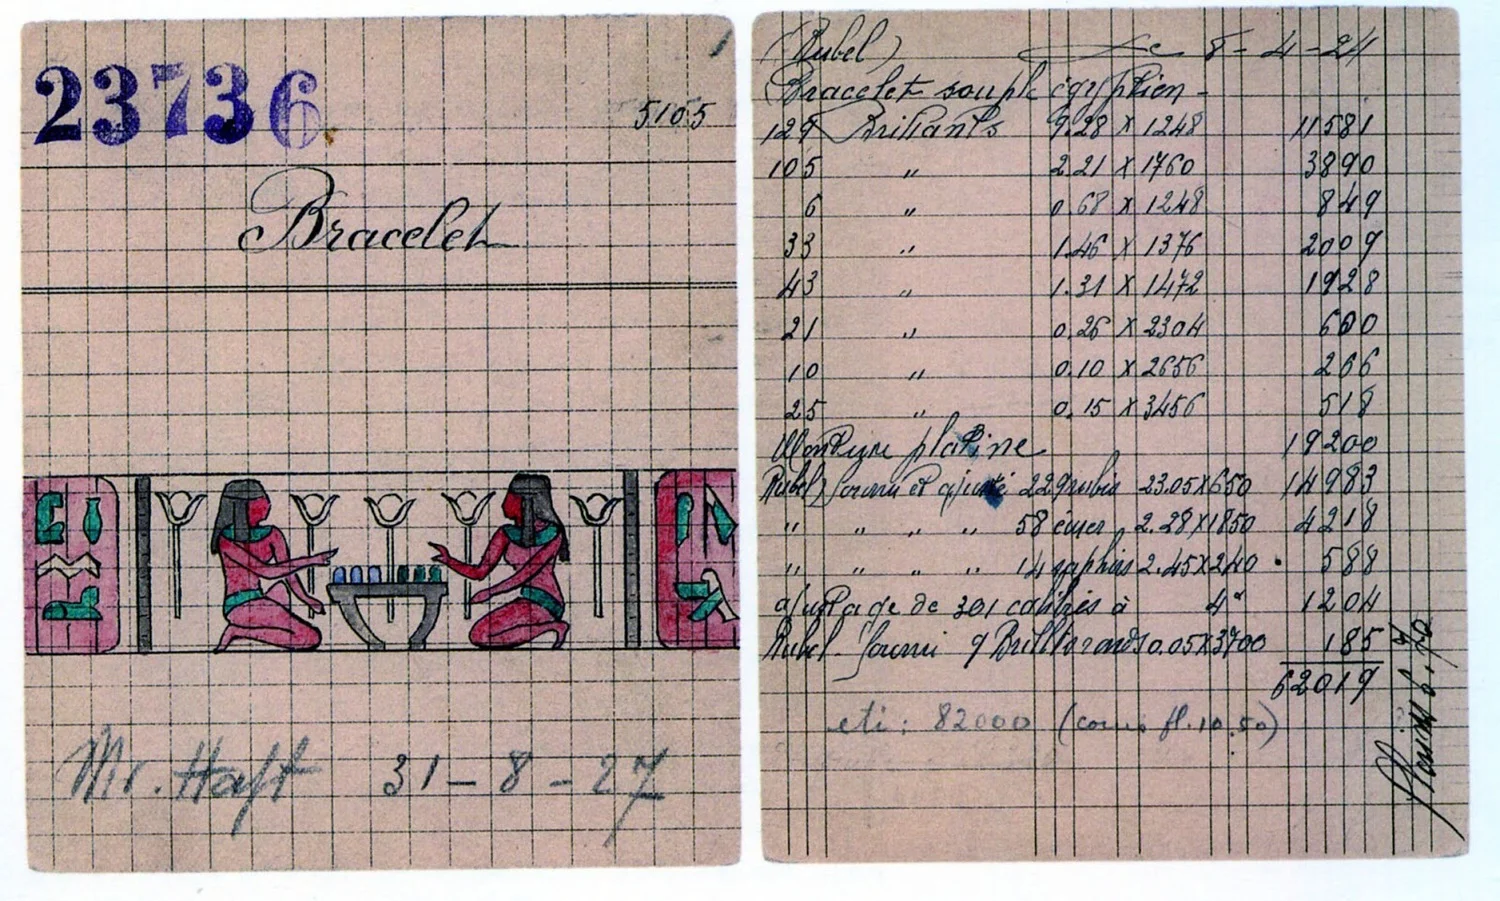 23736
5105
Bracelet
Mr. Haft 31-8-27
(Rubel) 8-4-24
Bracelet souple égyptien-
129 Brillants 9.28 X 1248 11581
105 " 2.21 X 1760 3890
6 " 0.68 X 1248 849
33 " 1.46 X 1376 2009
43 " 1.31 X 1472 1928
21 " 0.26 X 2304 600
10 " 0.10 X 2656 266
25 " 0.15 X 3456 518
Monture platine 19200
Rubel fourni et ajusté 229 rubis 23.05X650 14983
" " " " 58 émer 2.28X1850 4218
" " " " 14 saphirs 2.45X240 • 588
ajustage de 301 calibrés à 4" 1204
Rubel fourni 9 Brill 0.05X3700 185
62019
eti: 82000 (cours fl. 10.50)